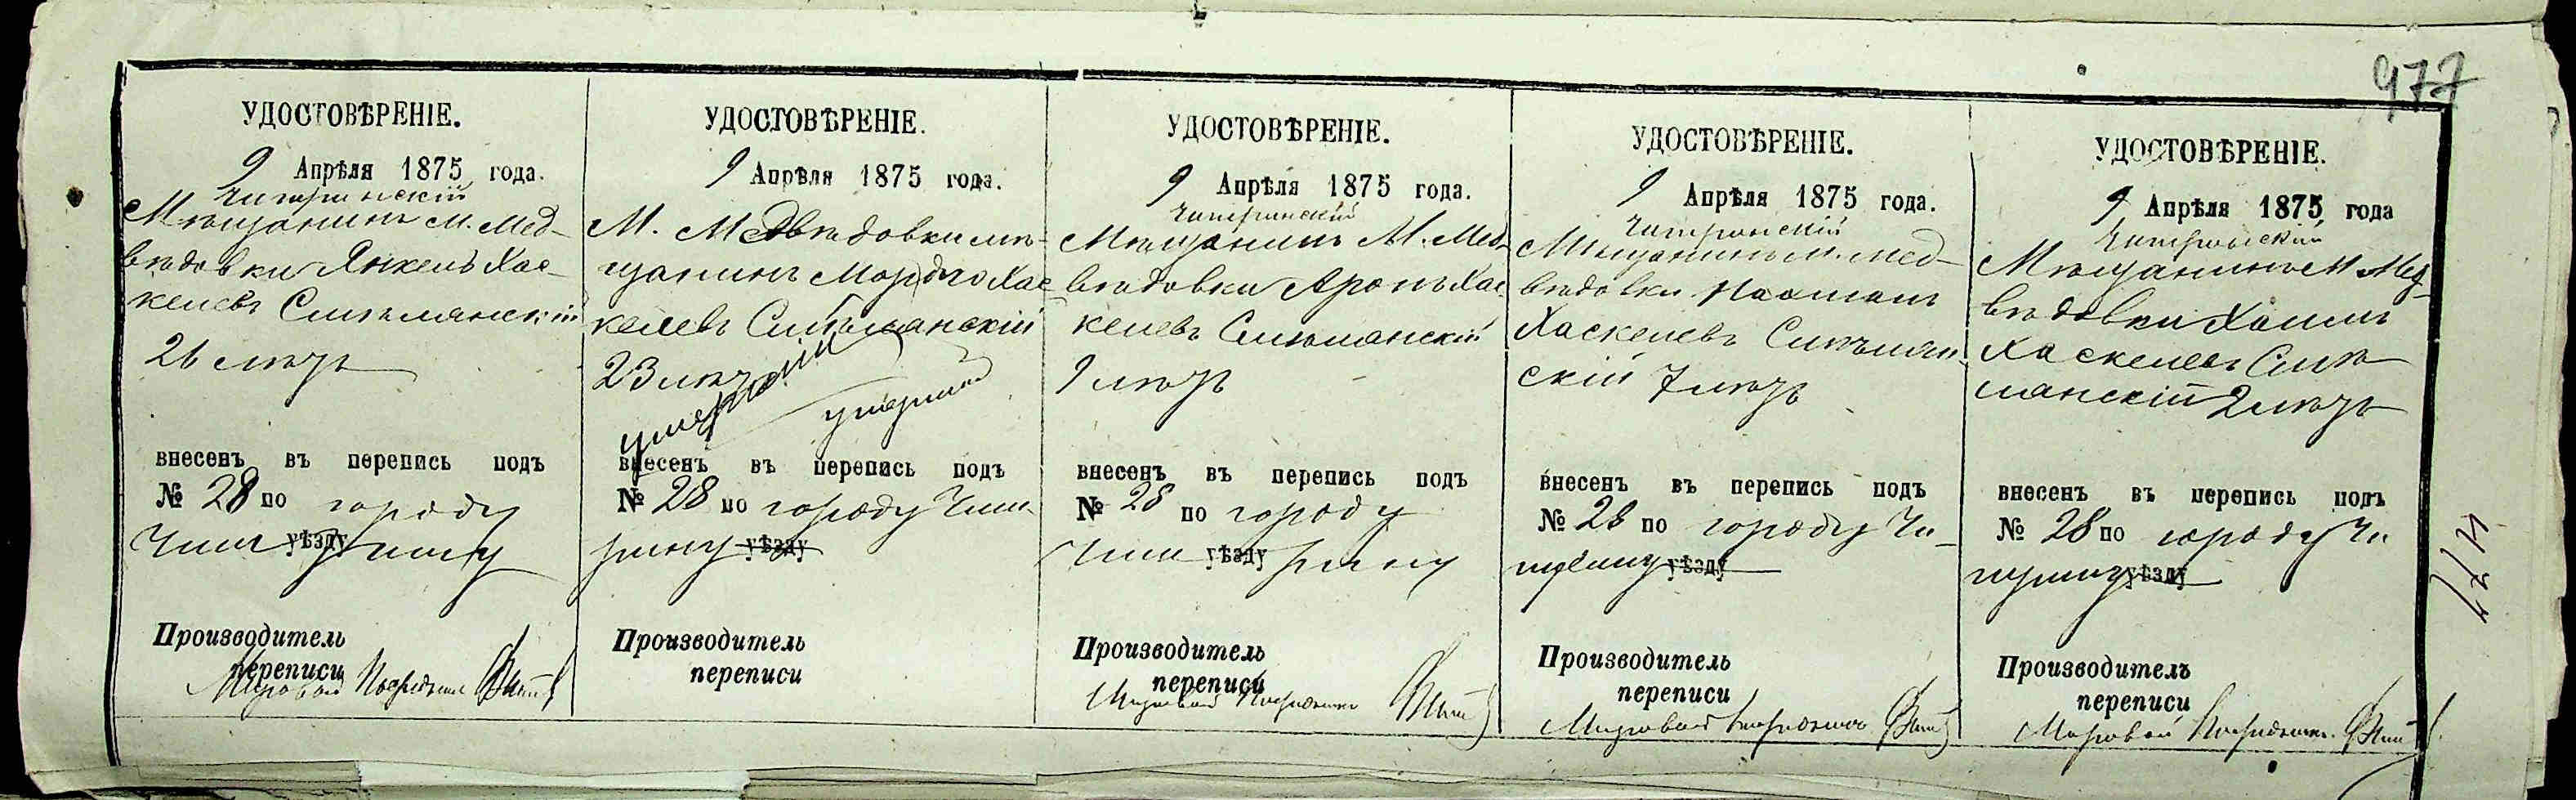 977
УДОСТОВѢРЕНІЕ.
9 Апрѣля 1875 года.
Чигиринскій
Мѣщанинъ М. Мед-
вѣдовки Янкель Хас-
келевъ Смѣлянскій
26 лѣтъ
внесенъ въ перепись подъ
№ 28 по городу
Чиги уѣзду рину
Производитель
переписи
Мировой Посредникъ
УДОСТОВѢРЕНІЕ.
9 Апрѣля 1875 года.
М. Медвѣдовки мѣ-
щанинъ Мордко Хас-
келевъ Смѣлянскій
23 лѣтъ
умершій
умершій
внесенъ въ перепись подъ
№ 28 по городу Чиги-
рину уѣзду
Производитель
переписи
УДОСТОВѢРЕНІЕ.
9 Апрѣля 1875 года.
Чигиринскій
Мѣщанинъ М. Мед-
вѣдовки Аронъ Хас-
келевъ Смѣлянскій
9 лѣтъ
внесенъ въ перепись подъ
№ 28 по городу
Чиги уѣзду рину
Производитель
переписи
Мировой Посредникъ
УДОСТОВѢРЕНІЕ.
9 Апрѣля 1875 года.
Чигиринскій
Мѣщанинъ М. Мед-
вѣдовки Нахманъ
Хаскелевъ Смѣлян-
скій 7 лѣтъ
внесенъ въ перепись подъ
№ 28 по городу Чи-
гирину уѣзду
Производитель
переписи
Мировой Посредникъ
УДОСТОВѢРЕНІЕ.
9 Апрѣля 1875 года
Чигиринскій
Мѣщанинъ М Мед-
вѣдовки Хаимъ
Хаскелевъ Смѣ
лянскій 2 лѣтъ
внесенъ въ перепись подъ
№ 28 по городу Чи
гирину уѣзду
Производитель
переписи
Мировой Посредникъ